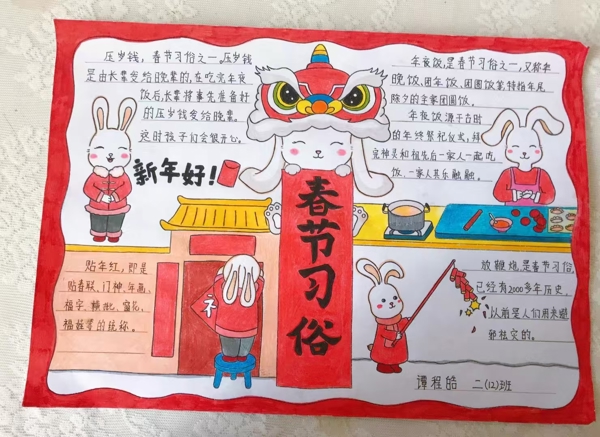 压岁钱，春节习俗之一，压岁钱
是由长辈发给晚辈的，在吃完年夜
饭后，长辈将事先准备好
的压岁钱发给晚辈。
这时孩子们会很开心。
新年好！
春节习俗
年夜饭，是春节习俗之一，又称年
晚饭、团年饭、团圆饭等，特指年尾
除夕的全家团圆饭，
年夜饭源于古时
的年终祭祀仪式，拜
完神灵和祖先后一家人一起吃
饭，一家人其乐融融。
贴年红，即是
贴春联、门神、年画、
福字、横批、窗花、
福筵等的统称。
放鞭炮，是春节习俗，
已经有2000多年历史，
以前是人们用来避
邪祛灾的。
谭程皓 二(12)班